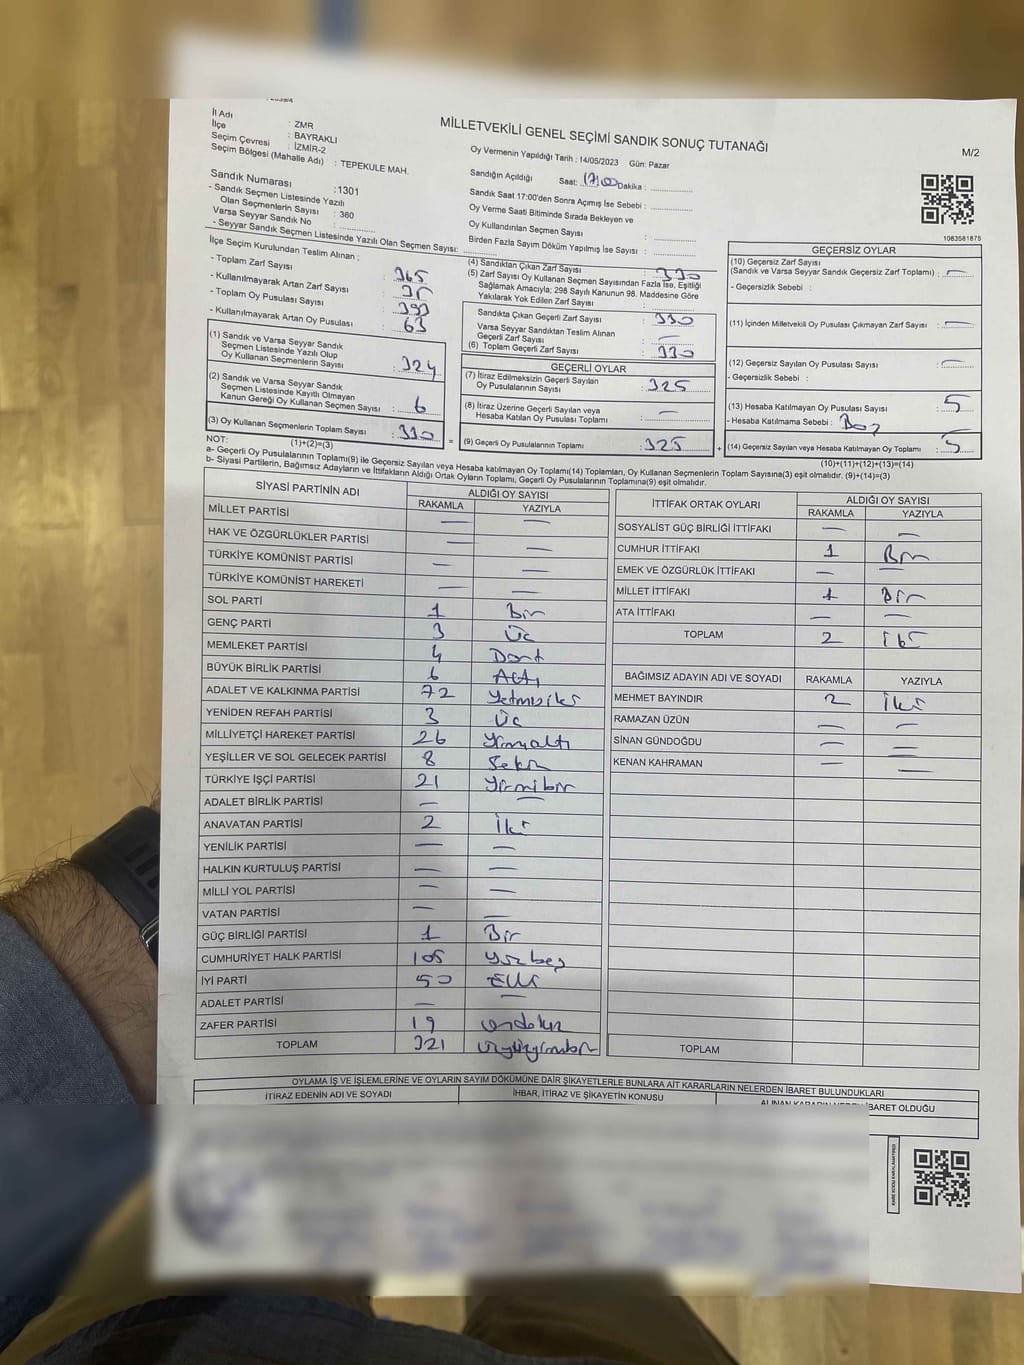 MİLLETVEKİLİ GENEL SEÇİMİ SANDIK SONUÇ TUTANAĞI
M/2
İl Adı : ZMR
İlçe : BAYRAKLI
Seçim Çevresi : İZMİR-2
Seçim Bölgesi (Mahalle Adı) : TEPEKULE MAH.
Sandık Numarası : 1301
- Sandık Seçmen Listesinde Yazılı
Olan Seçmenlerin Sayısı : 360
Varsa Seyyar Sandık No :
- Seyyar Sandık Seçmen Listesinde Yazılı Olan Seçmen Sayısı:
Oy Vermenin Yapıldığı Tarih : 14/05/2023 Gün: Pazar
Sandığın Açıldığı Saat: 17:00 Dakika :
Sandık Saat 17:00'den Sonra Açımış İse Sebebi :
Oy Verme Saati Bitiminde Sırada Bekleyen ve
Oy Kullandırılan Seçmen Sayısı :
Birden Fazla Sayım Döküm Yapılmış İse Sayısı :
1083581875
İlçe Seçim Kurulundan Teslim Alınan ;
- Toplam Zarf Sayısı : 365
- Kullanılmayarak Artan Zarf Sayısı : 35
- Toplam Oy Pusulası Sayısı : 393
- Kullanılmayarak Artan Oy Pusulası : 63
(1) Sandık ve Varsa Seyyar Sandık
Seçmen Listesinde Yazılı Olup
Oy Kullanan Seçmenlerin Sayısı : 324
(2) Sandık ve Varsa Seyyar Sandık
Seçmen Listesinde Kayıtlı Olmayan
Kanun Gereği Oy Kullanan Seçmen Sayısı : 6
(3) Oy Kullanan Seçmenlerin Toplam Sayısı : 330
(1)+(2)=(3)
(4) Sandıktan Çıkan Zarf Sayısı : 330
(5) Zarf Sayısı Oy Kullanan Seçmen Sayısından Fazla İse, Eşitliği
Sağlamak Amacıyla; 298 Sayılı Kanunun 98. Maddesine Göre
Yakılarak Yok Edilen Zarf Sayısı :
Sandıkta Çıkan Geçerli Zarf Sayısı : 330
Varsa Seyyar Sandıktan Teslim Alınan
Geçerli Zarf Sayısı : —
(6) Toplam Geçerli Zarf Sayısı : 330
GEÇERLİ OYLAR
(7) İtiraz Edilmeksizin Geçerli Sayılan
Oy Pusulalarının Sayısı : 325
(8) İtiraz Üzerine Geçerli Sayılan veya
Hesaba Katılan Oy Pusulaları Toplamı : —
= (9) Geçerli Oy Pusulalarının Toplamı : 325 +
GEÇERSİZ OYLAR
(10) Geçersiz Zarf Sayısı
(Sandık ve Varsa Seyyar Sandık Geçersiz Zarf Toplamı) : —
- Geçersizlik Sebebi :
(11) İçinden Milletvekili Oy Pusulası Çıkmayan Zarf Sayısı : —
(12) Geçersiz Sayılan Oy Pusulası Sayısı : —
- Geçersizlik Sebebi :
(13) Hesaba Katılmayan Oy Pusulası Sayısı : 5
- Hesaba Katılmama Sebebi : Boş
(14) Geçersiz Sayılan veya Hesaba Katılmayan Oy Toplamı : 5
(10)+(11)+(12)+(13)=(14)
NOT:
a- Geçerli Oy Pusulalarının Toplamı(9) ile Geçersiz Sayılan veya Hesaba katılmayan Oy Toplamı(14) Toplamları, Oy Kullanan Seçmenlerin Toplam Sayısına(3) eşit olmalıdır. (9)+(14)=(3)
b- Siyasi Partilerin, Bağımsız Adayların ve İttifakların Aldığı Ortak Oyların Toplamı, Geçerli Oy Pusulalarının Toplamına(9) eşit olmalıdır.
SİYASİ PARTİNİN ADI ALDIĞI OY SAYISI
RAKAMLA YAZIYLA
MİLLET PARTİSİ — —
HAK VE ÖZGÜRLÜKLER PARTİSİ — —
TÜRKİYE KOMÜNİST PARTİSİ — —
TÜRKİYE KOMÜNİST HAREKETİ — —
SOL PARTİ 1 Bir
GENÇ PARTİ 3 Üç
MEMLEKET PARTİSİ 4 Dört
BÜYÜK BİRLİK PARTİSİ 6 Altı
ADALET VE KALKINMA PARTİSİ 72 Yetmişiki
YENİDEN REFAH PARTİSİ 3 Üç
MİLLİYETÇİ HAREKET PARTİSİ 26 Yirmialtı
YEŞİLLER VE SOL GELECEK PARTİSİ 8 Sekiz
TÜRKİYE İŞÇİ PARTİSİ 21 Yirmibir
ADALET BİRLİK PARTİSİ — —
ANAVATAN PARTİSİ 2 İki
YENİLİK PARTİSİ — —
HALKIN KURTULUŞ PARTİSİ — —
MİLLİ YOL PARTİSİ — —
VATAN PARTİSİ — —
GÜÇ BİRLİĞİ PARTİSİ 1 Bir
CUMHURİYET HALK PARTİSİ 105 Yüzbeş
İYİ PARTİ 50 Elli
ADALET PARTİSİ — —
ZAFER PARTİSİ 19 ondokuz
TOPLAM 321 üçyüzyirmibir
İTTİFAK ORTAK OYLARI ALDIĞI OY SAYISI
RAKAMLA YAZIYLA
SOSYALİST GÜÇ BİRLİĞİ İTTİFAKI — —
CUMHUR İTTİFAKI 1 Bir
EMEK VE ÖZGÜRLÜK İTTİFAKI — —
MİLLET İTTİFAKI 1 Bir
ATA İTTİFAKI — —
TOPLAM 2 iki
BAĞIMSIZ ADAYIN ADI VE SOYADI RAKAMLA YAZIYLA
MEHMET BAYINDIR 2 İki
RAMAZAN ÜZÜN — —
SİNAN GÜNDOĞDU — —
KENAN KAHRAMAN — —
TOPLAM
OYLAMA İŞ VE İŞLEMLERİNE VE OYLARIN SAYIM DÖKÜMÜNE DAİR ŞİKAYETLERLE BUNLARA AİT KARARLARIN NELERDEN İBARET BULUNDUKLARI
İTİRAZ EDENİN ADI VE SOYADI İHBAR, İTİRAZ VE ŞİKAYETİN KONUSU İBARET OLDUĞU